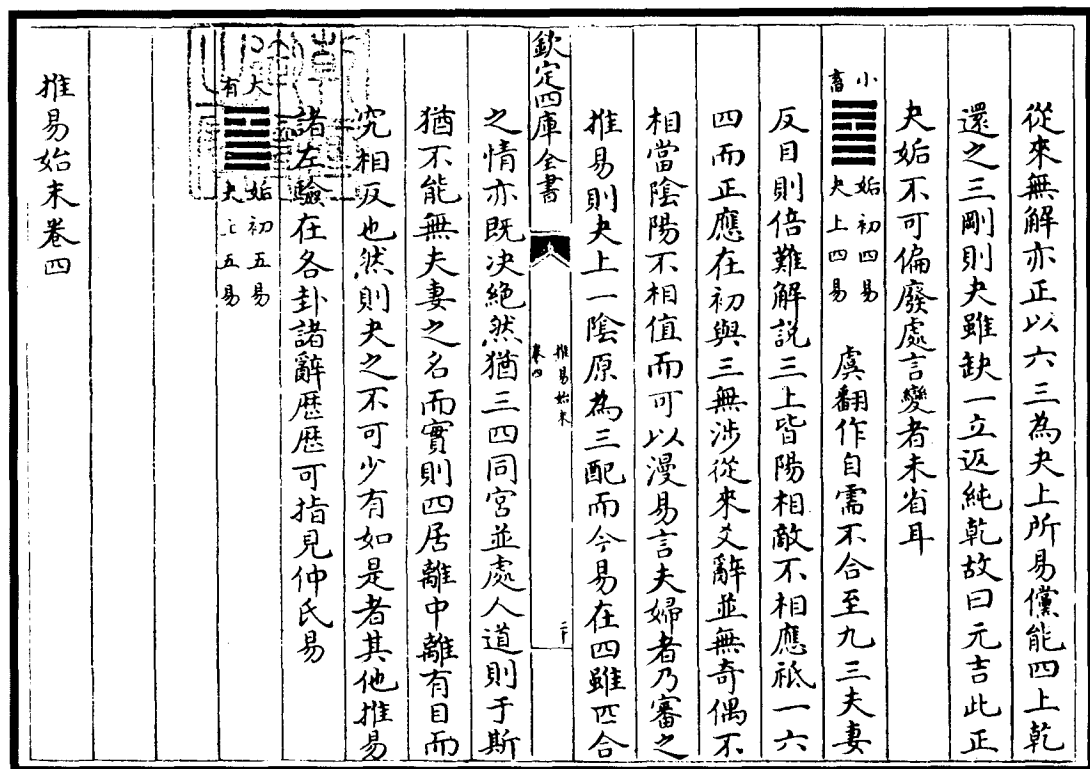 從來無解亦正以六三為夬上所易儻能四上乾
還之三剛則夬雖缺一立返純乾故曰元吉此正
夬姤不可偏廢處言變者未省耳
小畜
姤初四易
夬上四易
虞翻作自需不合至九三夫妻
反目則倍難解說三上皆陽相敵不相應祗一六
四而正應在初與三無涉從來爻辭並無奇偶不
相當陰陽不相值而可以漫易言夫婦者乃審之
推易則夬上一陰原為三配而今易在四雖匹合
欽定四庫全書
推易始末
卷四
二十
之情亦既決絕然猶三四同宮並處人道則于斯
猶不能無夫妻之名而實則四居離中離有目而
究相反也然則夬之不可少有如是者其他推易
諸左驗在各卦諸辭歷歷可指見仲氏易
大有
姤初五易
夬上五易
推易始末卷四